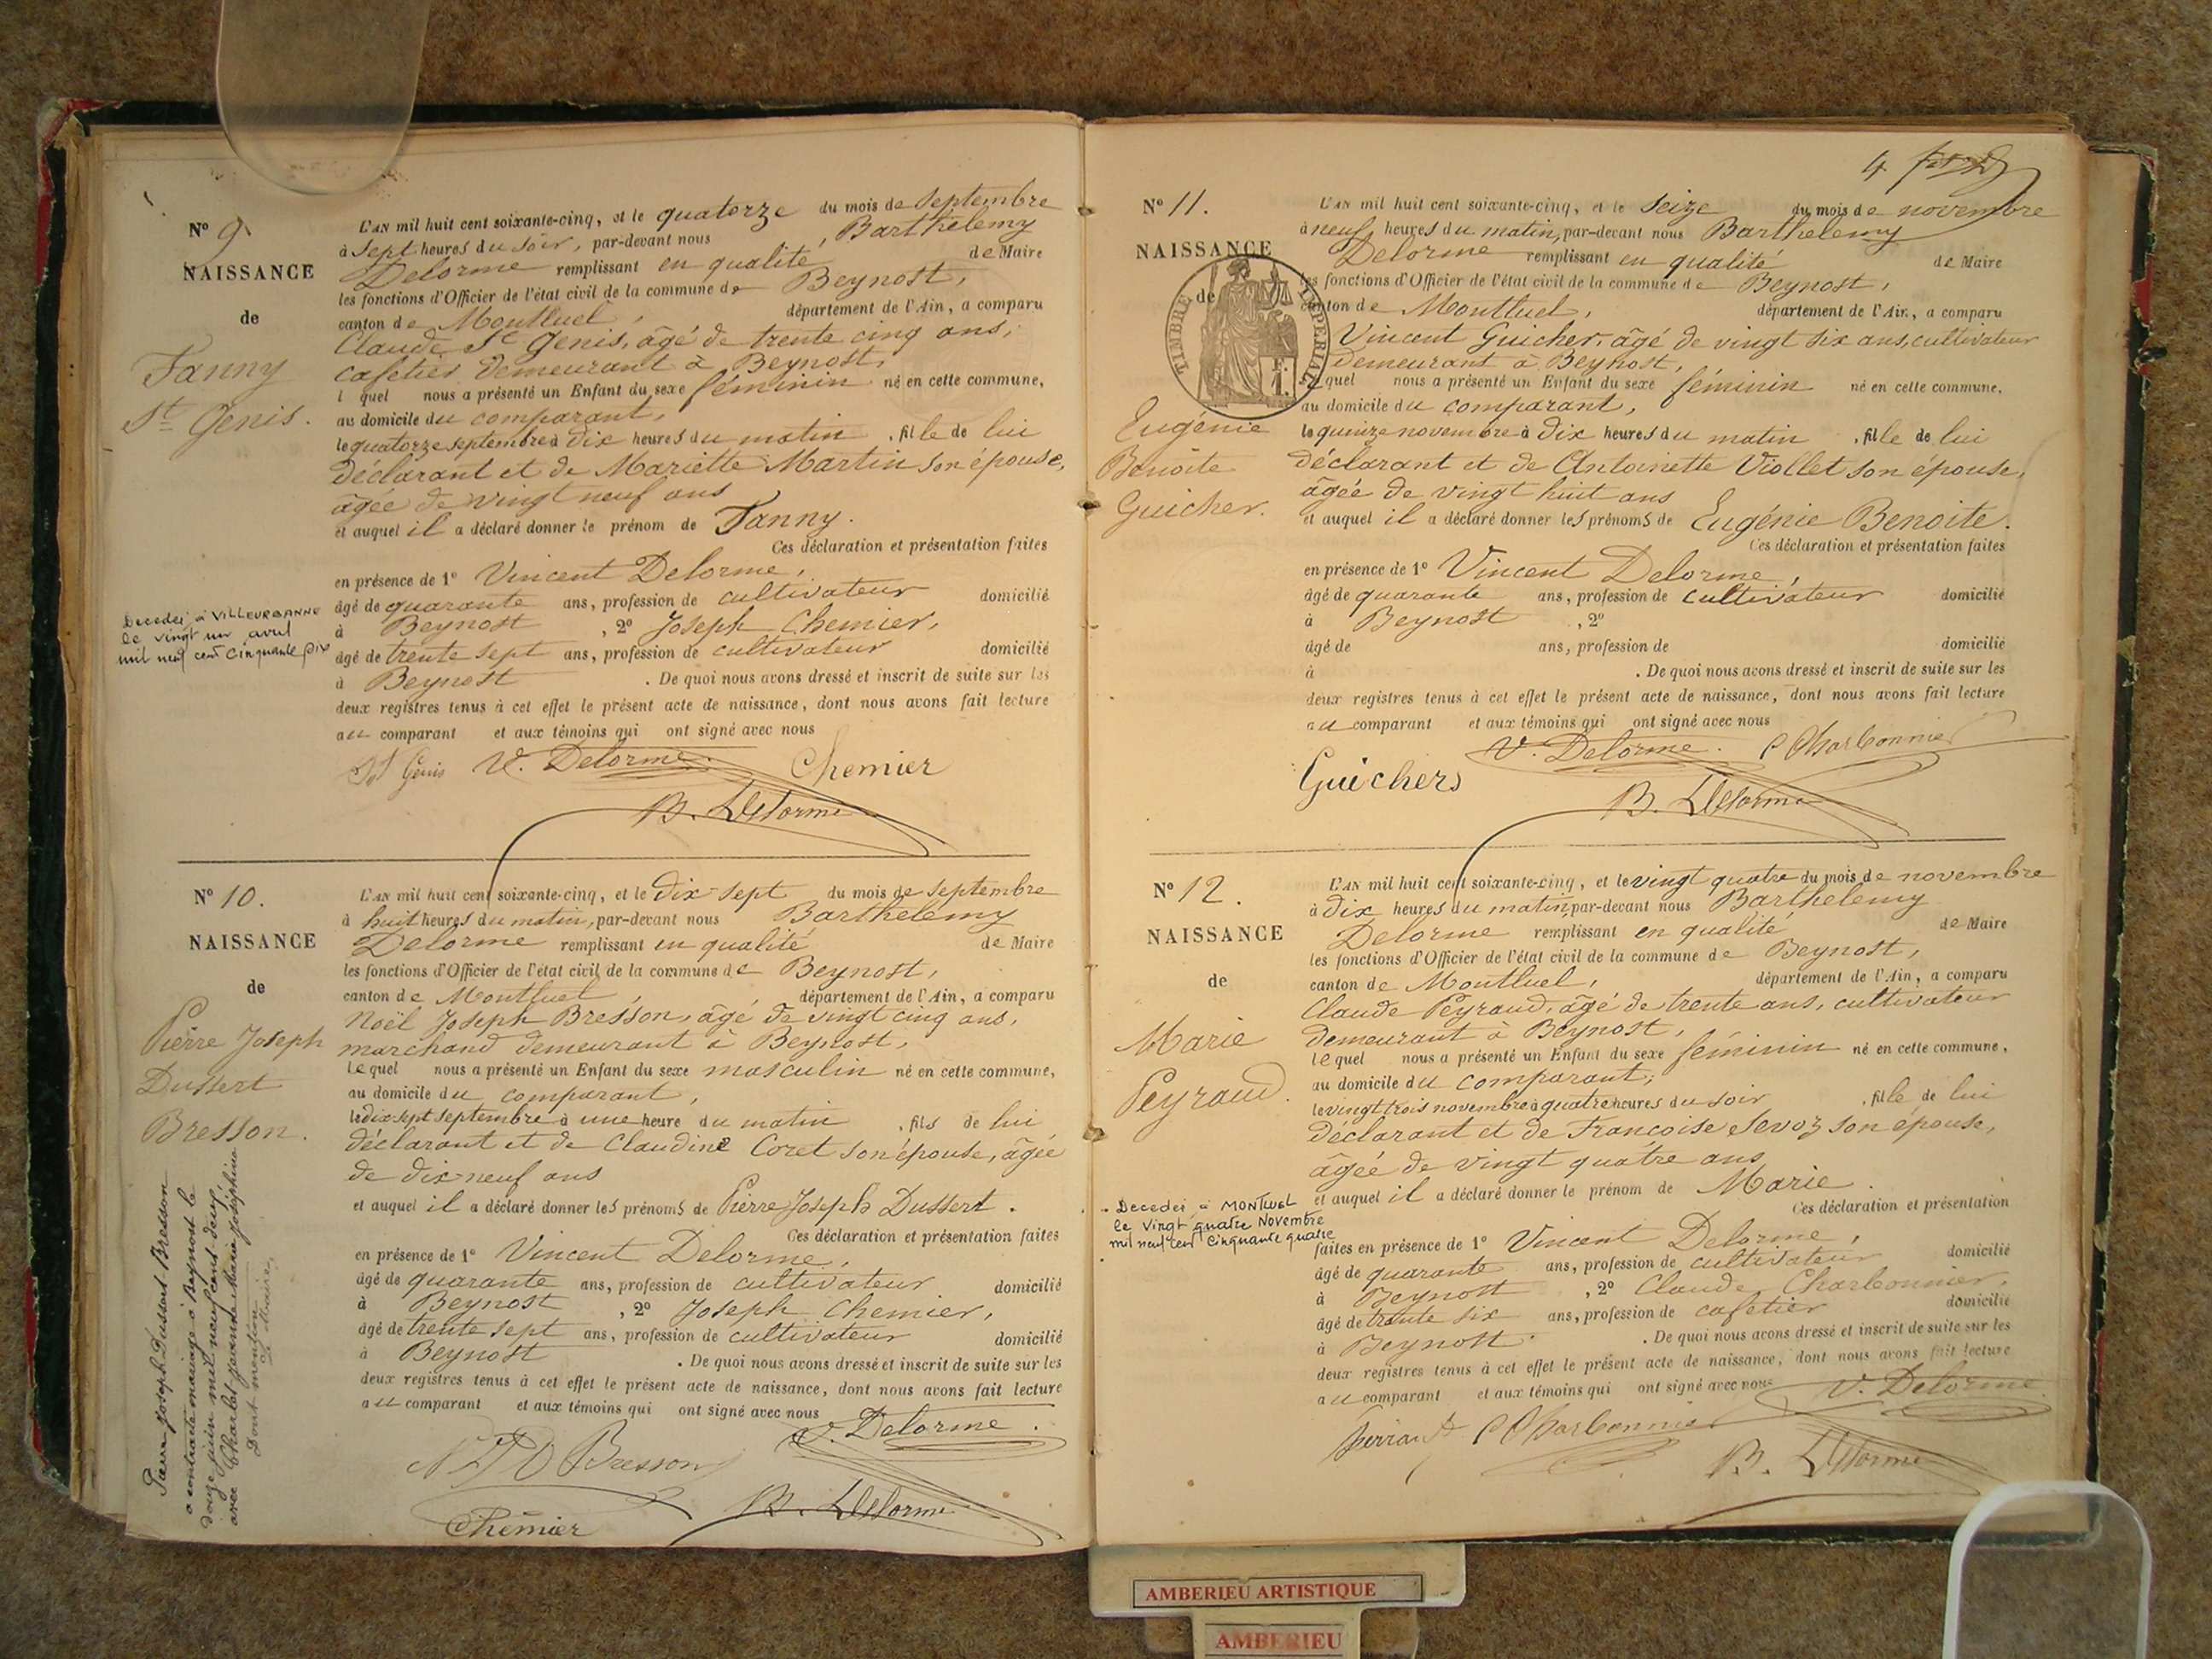 N° 9
NAISSANCE
de
Fanny
St Genis.
Decedei à VILLEURBANNE
le vingt un avril
mil neuf cent cinquante six
L'AN mil huit cent soixante-cinq, et le quatorze du mois de septembre
à sept heures du soir, par-devant nous Barthelemy
Delorme remplissant en qualité de Maire
les fonctions d'Officier de l'état civil de la commune de Beynost,
canton de Montluel, département de l'Ain, a comparu
Claude St Genis, âgé de trente cinq ans,
cafetier demeurant à Beynost,
l quel nous a présenté un Enfant du sexe féminin né en cette commune,
au domicile du comparant,
le quatorze septembre à dix heures du matin, fille de lui
déclarant et de Mariette Martin son épouse,
âgée de vingt neuf ans
et auquel il a déclaré donner le prénom de Fanny.
Ces déclaration et présentation faites
en présence de 1° Vincent Delorme,
âgé de quarante ans, profession de cultivateur domicilié
à Beynost, 2° Joseph Chemier,
âgé de trente sept ans, profession de cultivateur domicilié
à Beynost. De quoi nous avons dressé et inscrit de suite sur les
deux registres tenus à cet effet le présent acte de naissance, dont nous avons fait lecture
au comparant et aux témoins qui ont signé avec nous
St Genis V. Delorme. Chemier
B. Delorme
N° 10.
NAISSANCE
de
Pierre Joseph
Dussert
Bresson.
Pierre Joseph Dussert Bresson
a contracté mariage à Beynost le
douze juin mil neuf cent douze
avec Charlet Jeannette Marie Josephine
Dont mention
Le Maire,
L'AN mil huit cent soixante-cinq, et le dix-sept du mois de septembre
à huit heures du matin, par-devant nous Barthelemy
Delorme remplissant en qualité de Maire
les fonctions d'Officier de l'état civil de la commune de Beynost,
canton de Montluel, département de l'Ain, a comparu
Noël Joseph Bresson, âgé de vingt cinq ans,
marchand demeurant à Beynost,
lequel nous a présenté un Enfant du sexe masculin né en cette commune,
au domicile du comparant,
le dix sept septembre à une heure du matin, fils de lui
déclarant et de Claudine Coret son épouse, âgée
de dix neuf ans
et auquel il a déclaré donner les prénoms de Pierre Joseph Dussert.
Ces déclaration et présentation faites
en présence de 1° Vincent Delorme,
âgé de quarante ans, profession de cultivateur domicilié
à Beynost, 2° Joseph Chemier,
âgé de trente sept ans, profession de cultivateur domicilié
à Beynost. De quoi nous avons dressé et inscrit de suite sur les
deux registres tenus à cet effet le présent acte de naissance, dont nous avons fait lecture
au comparant et aux témoins qui ont signé avec nous
V. Delorme.
Bresson
B. Delorme
Chemier
4.
N° 11.
NAISSANCE
de
TIMBRE IMPERIAL
F.
1.
Eugénie
Benoite
Guicher.
L'AN mil huit cent soixante-cinq, et le seize du mois de novembre
à neuf heures du matin, par-devant nous Barthelemy
Delorme remplissant en qualité de Maire
les fonctions d'Officier de l'état civil de la commune de Beynost,
canton de Montluel, département de l'Ain, a comparu
Vincent Guicher, âgé de vingt six ans, cultivateur
demeurant à Beynost,
lequel nous a présenté un Enfant du sexe féminin né en cette commune.
au domicile du comparant,
le quinze novembre à dix heures du matin, fille de lui
déclarant et de Antoinette Viollet son épouse,
âgée de vingt huit ans
et auquel il a déclaré donner les prénoms de Eugénie Benoite.
Ces déclaration et présentation faites
en présence de 1° Vincent Delorme,
âgé de quarante ans, profession de cultivateur domicilié
à Beynost, 2°
âgé de ans, profession de domicilié
à . De quoi nous avons dressé et inscrit de suite sur les
deux registres tenus à cet effet le présent acte de naissance, dont nous avons fait lecture
au comparant et aux témoins qui ont signé avec nous
V. Delorme. C Charbonnier
Guichers
B. Delorme
N° 12.
NAISSANCE
de
Marie
Peyraud.
Decedei à MONTLUEL
le Vingt quatre Novembre
mil neuf cent cinquante quatre
L'AN mil huit cent soixante-cinq, et le vingt quatre du mois de novembre
à dix heures du matin, par-devant nous Barthelemy
Delorme remplissant en qualité de Maire
les fonctions d'Officier de l'état civil de la commune de Beynost,
canton de Montluel, département de l'Ain, a comparu
Claude Peyraud, âgé de trente ans, cultivateur
demeurant à Beynost,
lequel nous a présenté un Enfant du sexe féminin né en cette commune,
au domicile du comparant,
le vingt trois novembre à quatre heures du soir, fille de lui
déclarant et de Françoise Sevoz son épouse,
âgée de vingt quatre ans
et auquel il a déclaré donner le prénom de Marie.
Ces déclaration et présentation
faites en présence de 1° Vincent Delorme,
âgé de quarante ans, profession de cultivateur domicilié
à Beynost, 2° Claude Charbonnier,
âgé de trente six ans, profession de cafetier domicilié
à Beynost. De quoi nous avons dressé et inscrit de suite sur les
deux registres tenus à cet effet le présent acte de naissance, dont nous avons fait lecture
au comparant et aux témoins qui ont signé avec nous
V. Delorme
C Charbonnier
B. Delorme
AMBERIEU ARTISTIQUE
AMBERIEU